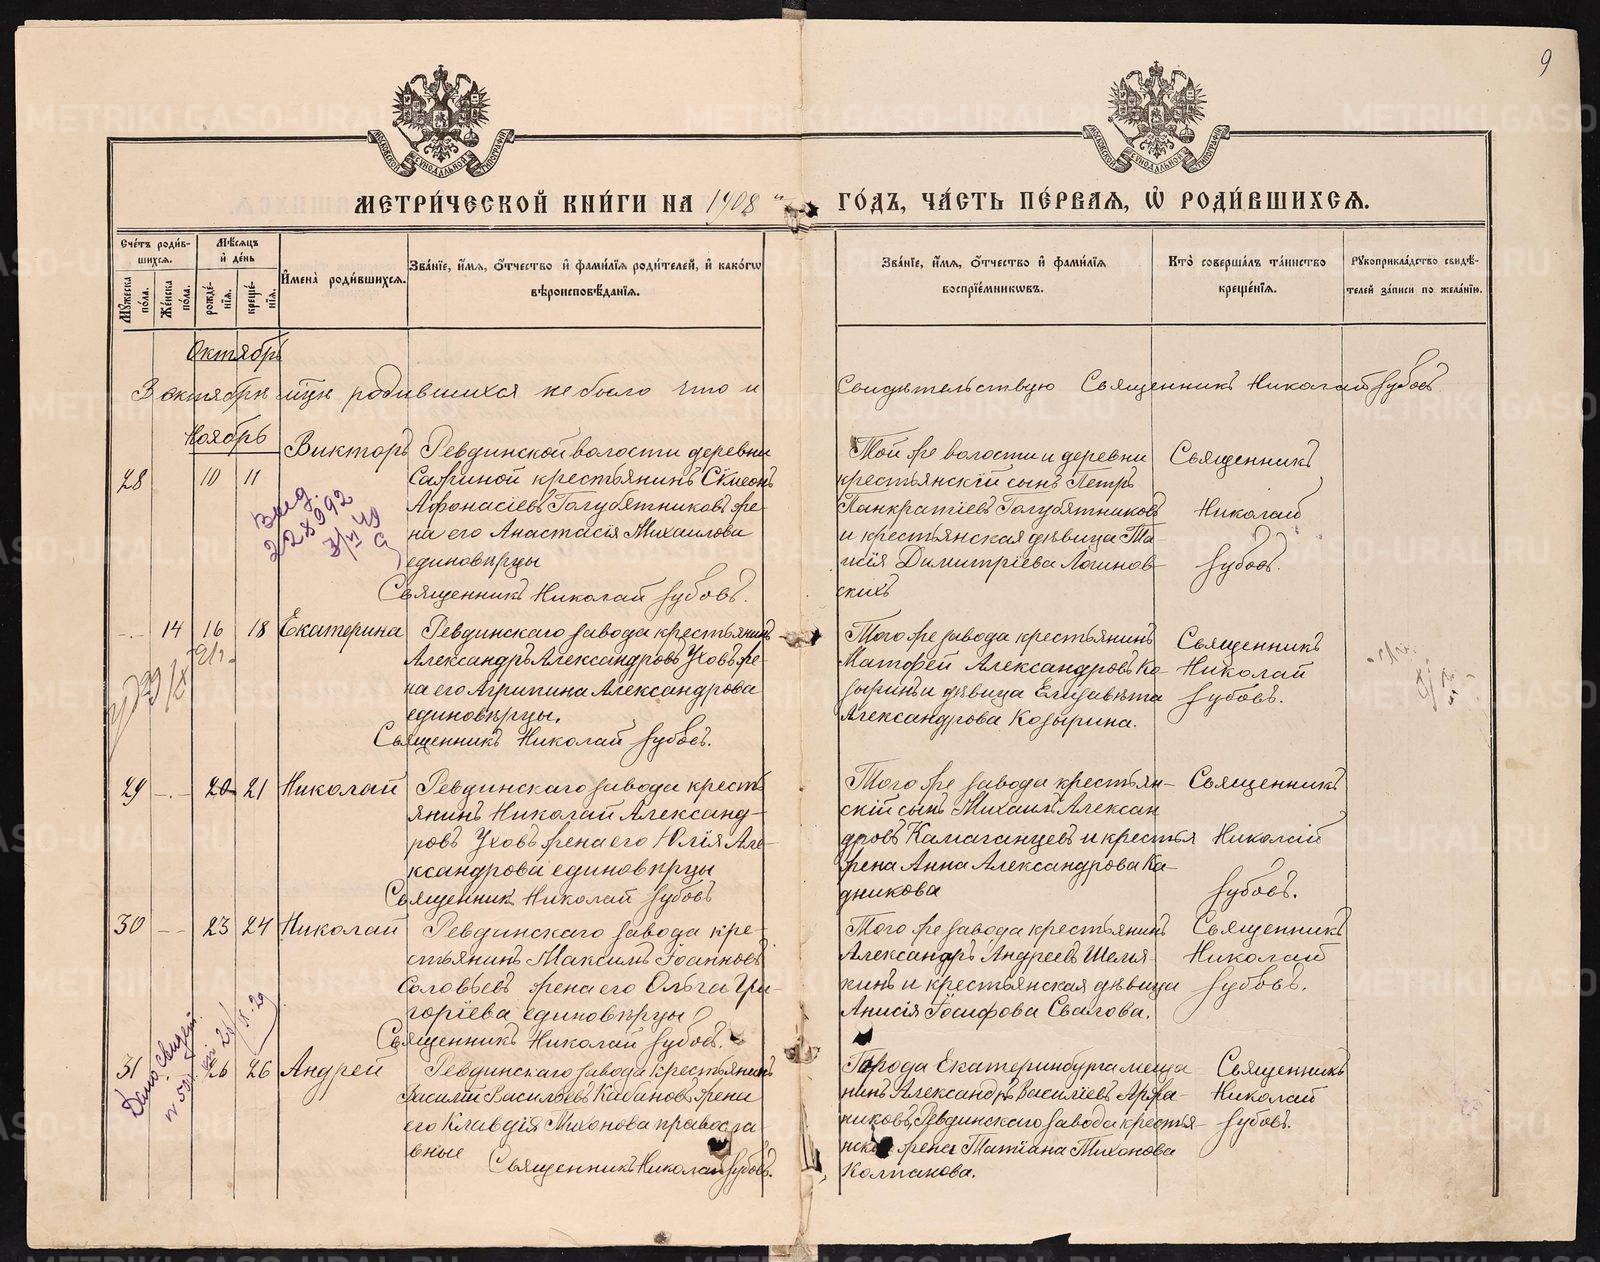 9
МЕТРИ́ЧЕСКОЙ КНИ́ГИ НА 1908 ГО́ДЪ, ЧА́СТЬ ПЕ́РВАЯ, Ѡ҆ РОДИ́ВШИХСЯ.
Сче́тъ роди́в-
шихся.
Мѣ́сяцъ
и҆ де́нь
Мꙋ́жеска
по́ла.
Же́нска
по́ла.
рожде́-
нїя.
креще́-
нїя.
И҆мена̀ роди́вшихся.
Зва́нїе, и҆́мя, ѻ҆́тчество и҆ фами́лїя роди́телей, и҆ како́гѡ
вѣроисповѣ́данїя.
Зва́нїе, и҆́мя, ѻ҆́тчество и҆ фами́лїя
воспрїе́мникѡвъ.
Кто̀ соверша́лъ та́инство
креще́нїя.
Рꙋкоприкла́дство свидѣ́-
телей за́писи по жела́нїю.
Октябрь
В октябрѣ мцѣ родившихся не было что и
Свидѣтельствую Священникъ Николай Зубовъ
Ноябрь
28
10 11
Викторъ
Ревдинской волости деревни
Сажиной крестьянинъ Сѵмеонъ
Афонасіевъ Голубятниковъ же-
на его Анастасія Михаилова
единовѣрцы
Священникъ Николай Зубовъ.
Той же волости и деревни
крестьянскій сынъ Петръ
Панкратіевъ Голубятниковъ
и крестьянская дѣвица Та-
исія Димитріева Логинов-
скихъ
Священникъ
Николай
Зубовъ.
Выд.
228992
3/VI 49
14 16 18
Екатерина
Ревдинскаго завода крестьянинъ
Александръ Александровъ Уховъ же-
на его Агрипина Александрова
единовѣрцы.
Священникъ Николай Зубовъ.
Того же завода крестьянинъ
Матфей Александровъ Ко-
зыринъ и дѣвица Елизавета
Александрова Козырина.
Священникъ
Николай
Зубовъ.
29 20 21
Николай
Ревдинскаго завода кресть-
янинъ Николай Александ-
ровъ Уховъ жена его Юлія Але-
ксандрова единовѣрцы
Священникъ Николай Зубовъ
Того же завода крестьян-
скій сынъ Михаилъ Алексан
дровъ Камаганцевъ и крестья
жена Анна Александрова Ка-
дникова
Священникъ
Николай
Зубовъ.
30 23 24
Николай
Ревдинскаго завода кре-
стьянинъ Максимъ Іоанновъ
Соловьевъ жена его Ольга Гри-
горіева единовѣрцы
Священникъ Николай Зубовъ.
Того же завода крестьянинъ
Александръ Андреевъ Шемя-
кинъ и крестьянская дѣвица
Анисія Іосифова Свалова.
Священникъ
Николай
Зубовъ.
31 26 26
Андрей
Ревдинскаго завода крестьянинъ
Василій Васильевъ Кабановъ жена
его Клавдія Тихонова правосла
вные
Священникъ Николай Зубовъ.
Города Екатеринбурга меща
нинъ Александръ Василіевъ Аржа-
никовъ, Ревдинскаго завода крестья-
нская жена Татіана Тихонова
Колпакова.
Священникъ
Николай
Зубовъ.